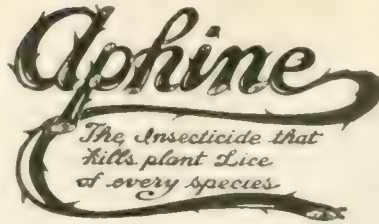 Aphine
The Insecticide that
kills plant Lice
of every species